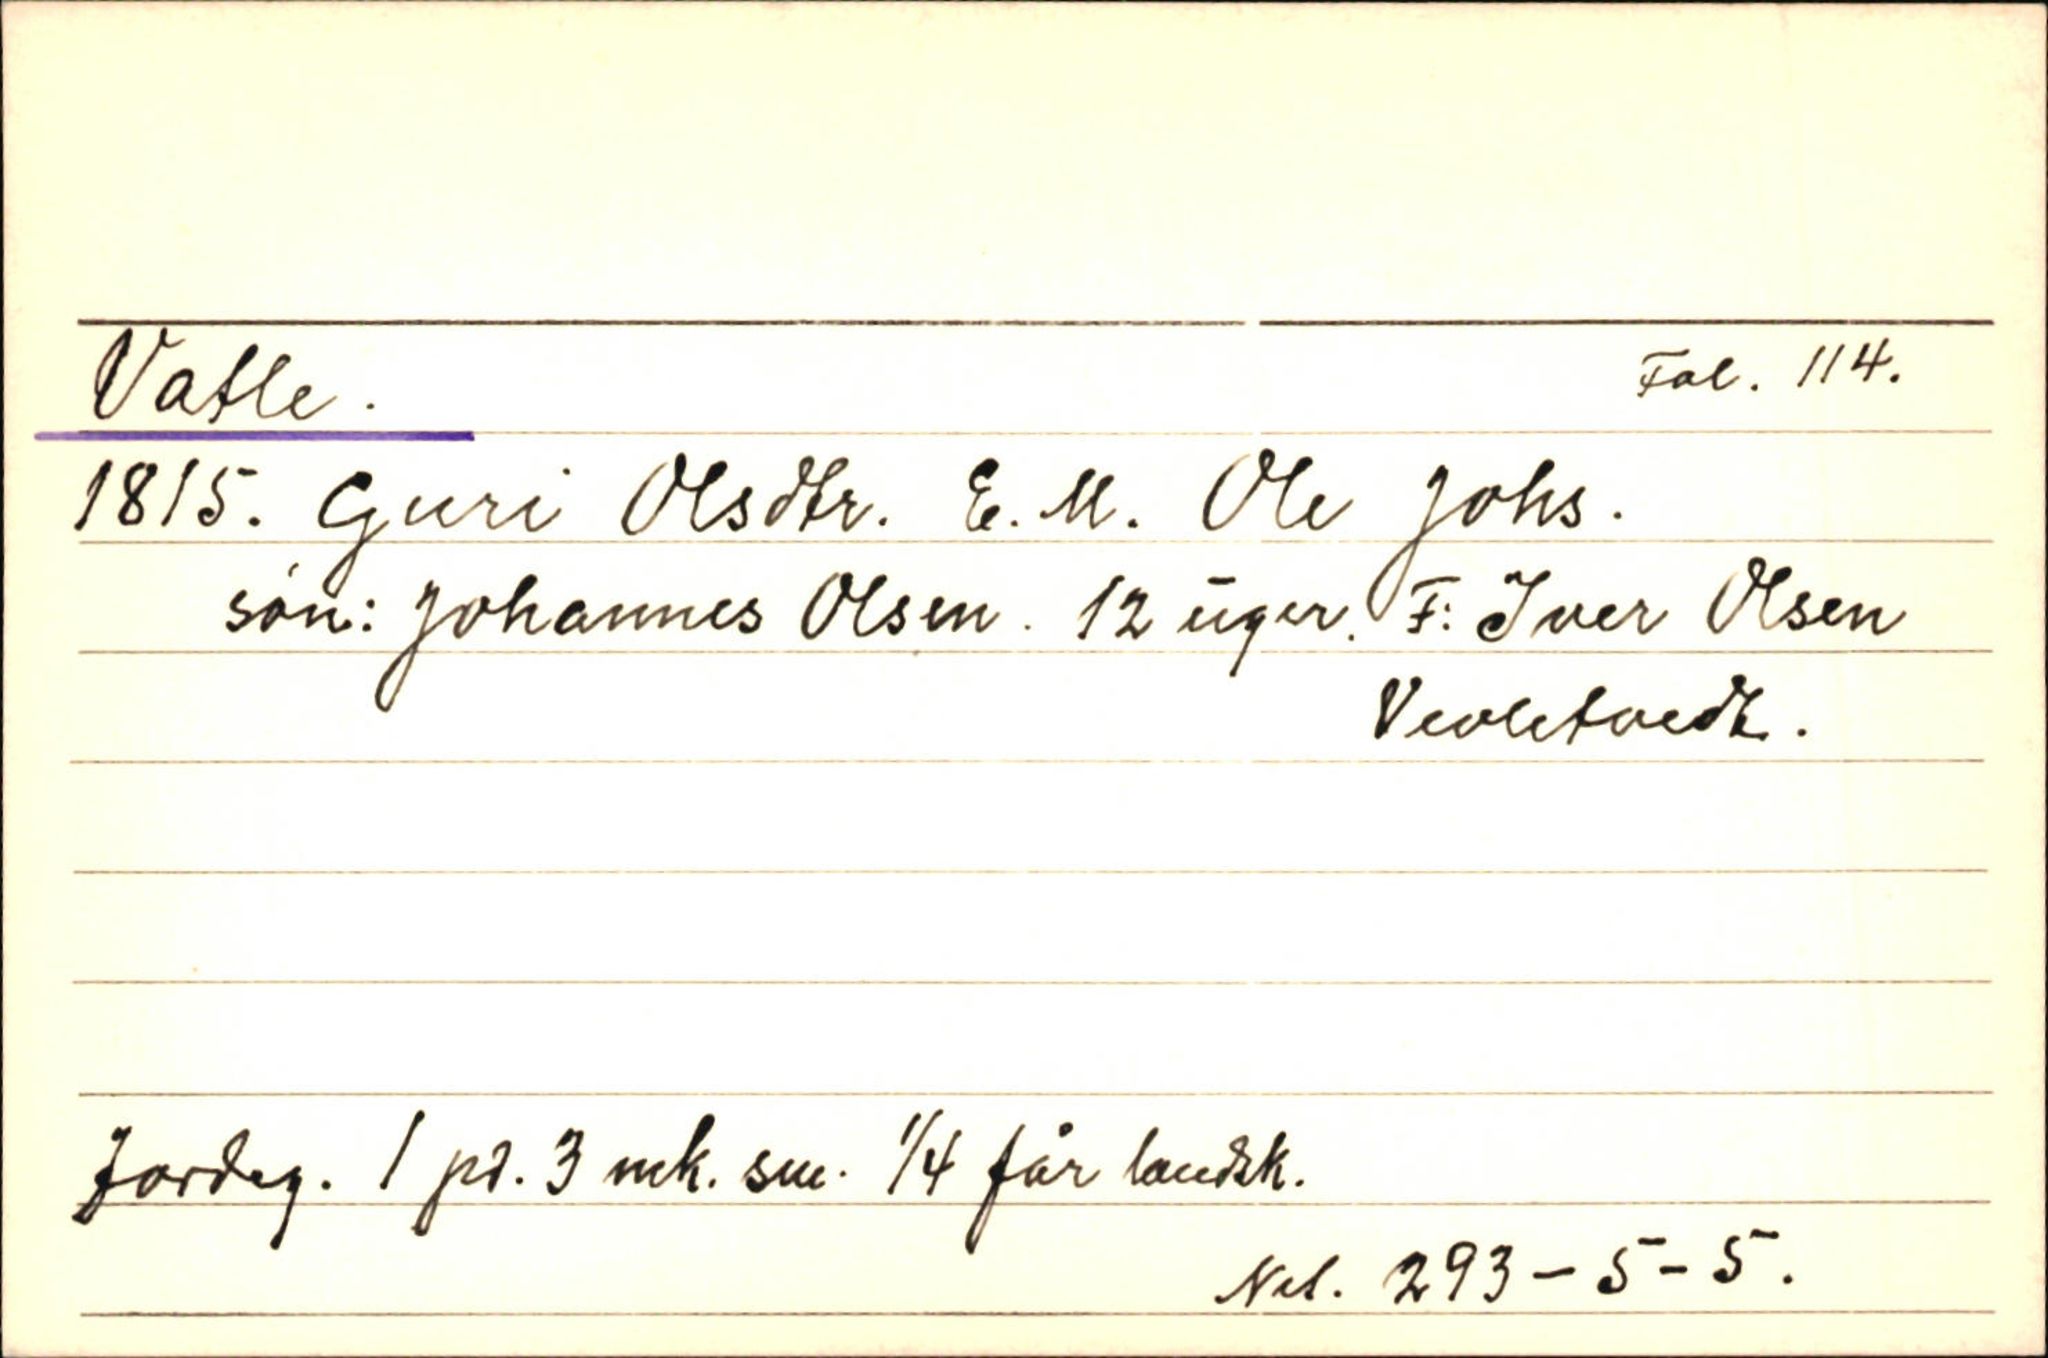 Vatle.
Fol. 114.
1815. Guri Olsdtr. E. M. Ole Johs.
søn: Johannes Olsen. 12 uger. F: Iver Olsen
Vevletvedt.
Jordeg. 1 pd. 3 mk. sm. 1/4 får landsk.
Net. 293-5-5.